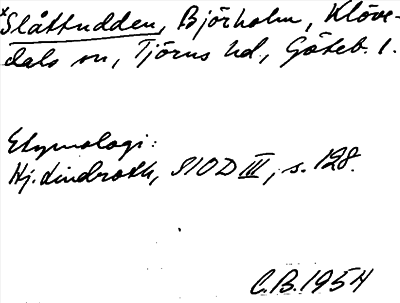 ×Slåttudden, Björholm, Klöve-
dals sn, Tjörns hd, Göteb. l.
Etymologi:
Hj. Lindroth, SIOD III, s. 128.
C.B. 1954